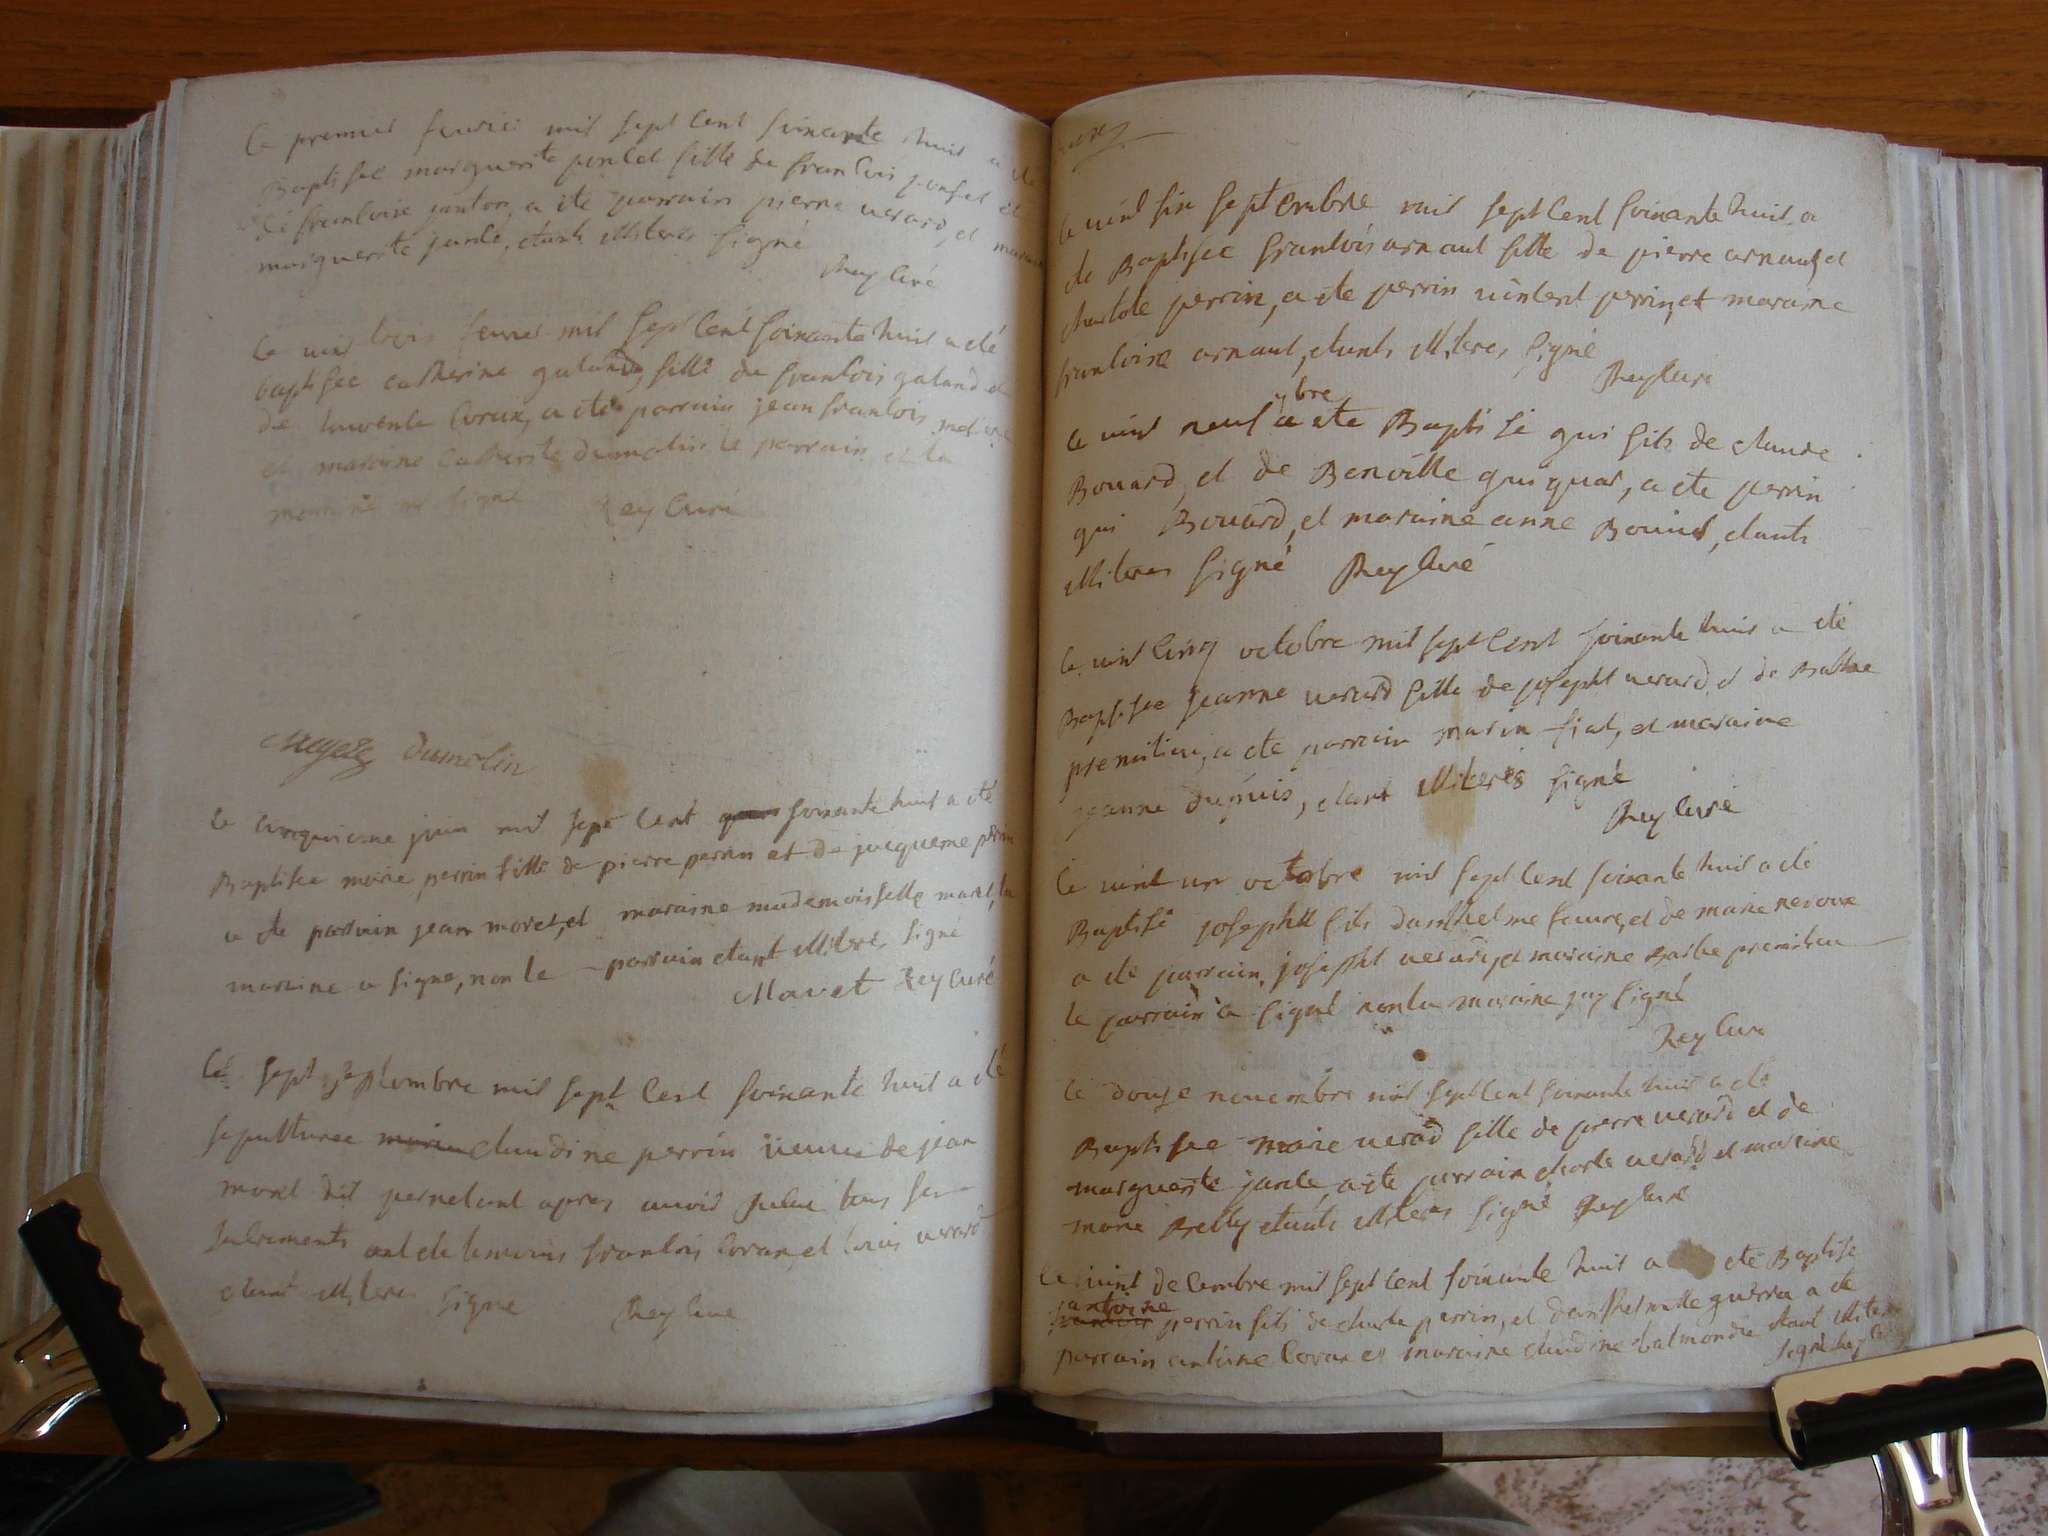 Le premier feurier mil sept cent soixante huit a ete
Baptisee marguerite poncet fille de francois ponset et
de francoise janton, a ete parrain pierre uerard, et maraine
marguerite jante, etants illiteres signé
Rey curé
Le uint trois feurier mil sept cent soixante huit a eté
baptisee catherine galand, fille de francois galand et
de laurence coraux, a ete parrain jean francois
et maraine catherite dumolin le parrain et la
maraine ont signe Rey Curé
dumolin
Le cinquieme juin mil sept cent soixante huit a eté
Baptisee marie perrin fille de pierre perrin et de jacqueme perrin
a ete parrain jean moret, et maraine mademoisselle maret, la
maraine a signe, non le parrain etant illiteré, signé
Mavet Rey Curé
Le sept septembre mil sept cent soixante huit a eté
sepulturee claudine perrin ueuue de jean
moret dit pernet ant apres auoir recue tous ses
sacrements ont ete temoins francois coraux, et louis uerard
etant illiteres signe Rey cure
Le uint six septembre mil sept cent soixante huit a
ete Baptisee francois arnaut fille de pierre arnaut et
charlote perrin, a ete perrin uincent perrin, et maraine
francoise arnaut, etants illiteres signé
Rey cure
Le uint neuf 7bre a ete Baptisé gui fils de claude
Bouard, et de Benoitte guiguar, a ete perrin
gui Bouard, et maraine anne Bouier, etants
illiteres signé Rey Curé
Le uint cinq octobre mil sept cent soixante huit a eté
Baptisee jeanne uerard fille de josepht uerard et de Balthe
premitieu, a ete parrain marin fiat, et maraine
jeanne dupuis, etant illiterés signé
Rey Curé
Le uint un octobre mil sept cent soixante huit a eté
Baptisé josephtt fils danthelme faure, et de marie neroux
a eté parrain josepht uerard, et maraine Barbe premitieu
le parrain a signé non la maraine jay signé
Rey Cure
Le douze nouembre mil sept cent soixante huit a eté
Baptisee marie uerard fille de pierre uerard et de
marguerite jante, a ete parrain charle uerard et maraine
marie Belly etants illiteres signé Rey curé
Le uint decembre mil sept cent soixante huit a eté Baptise
antoine
perrin fils de charle perrin, et danthelmette guerra a ete
parrain antoine Coraux et maraine claudine balmondie etant illiteres
signé Rey